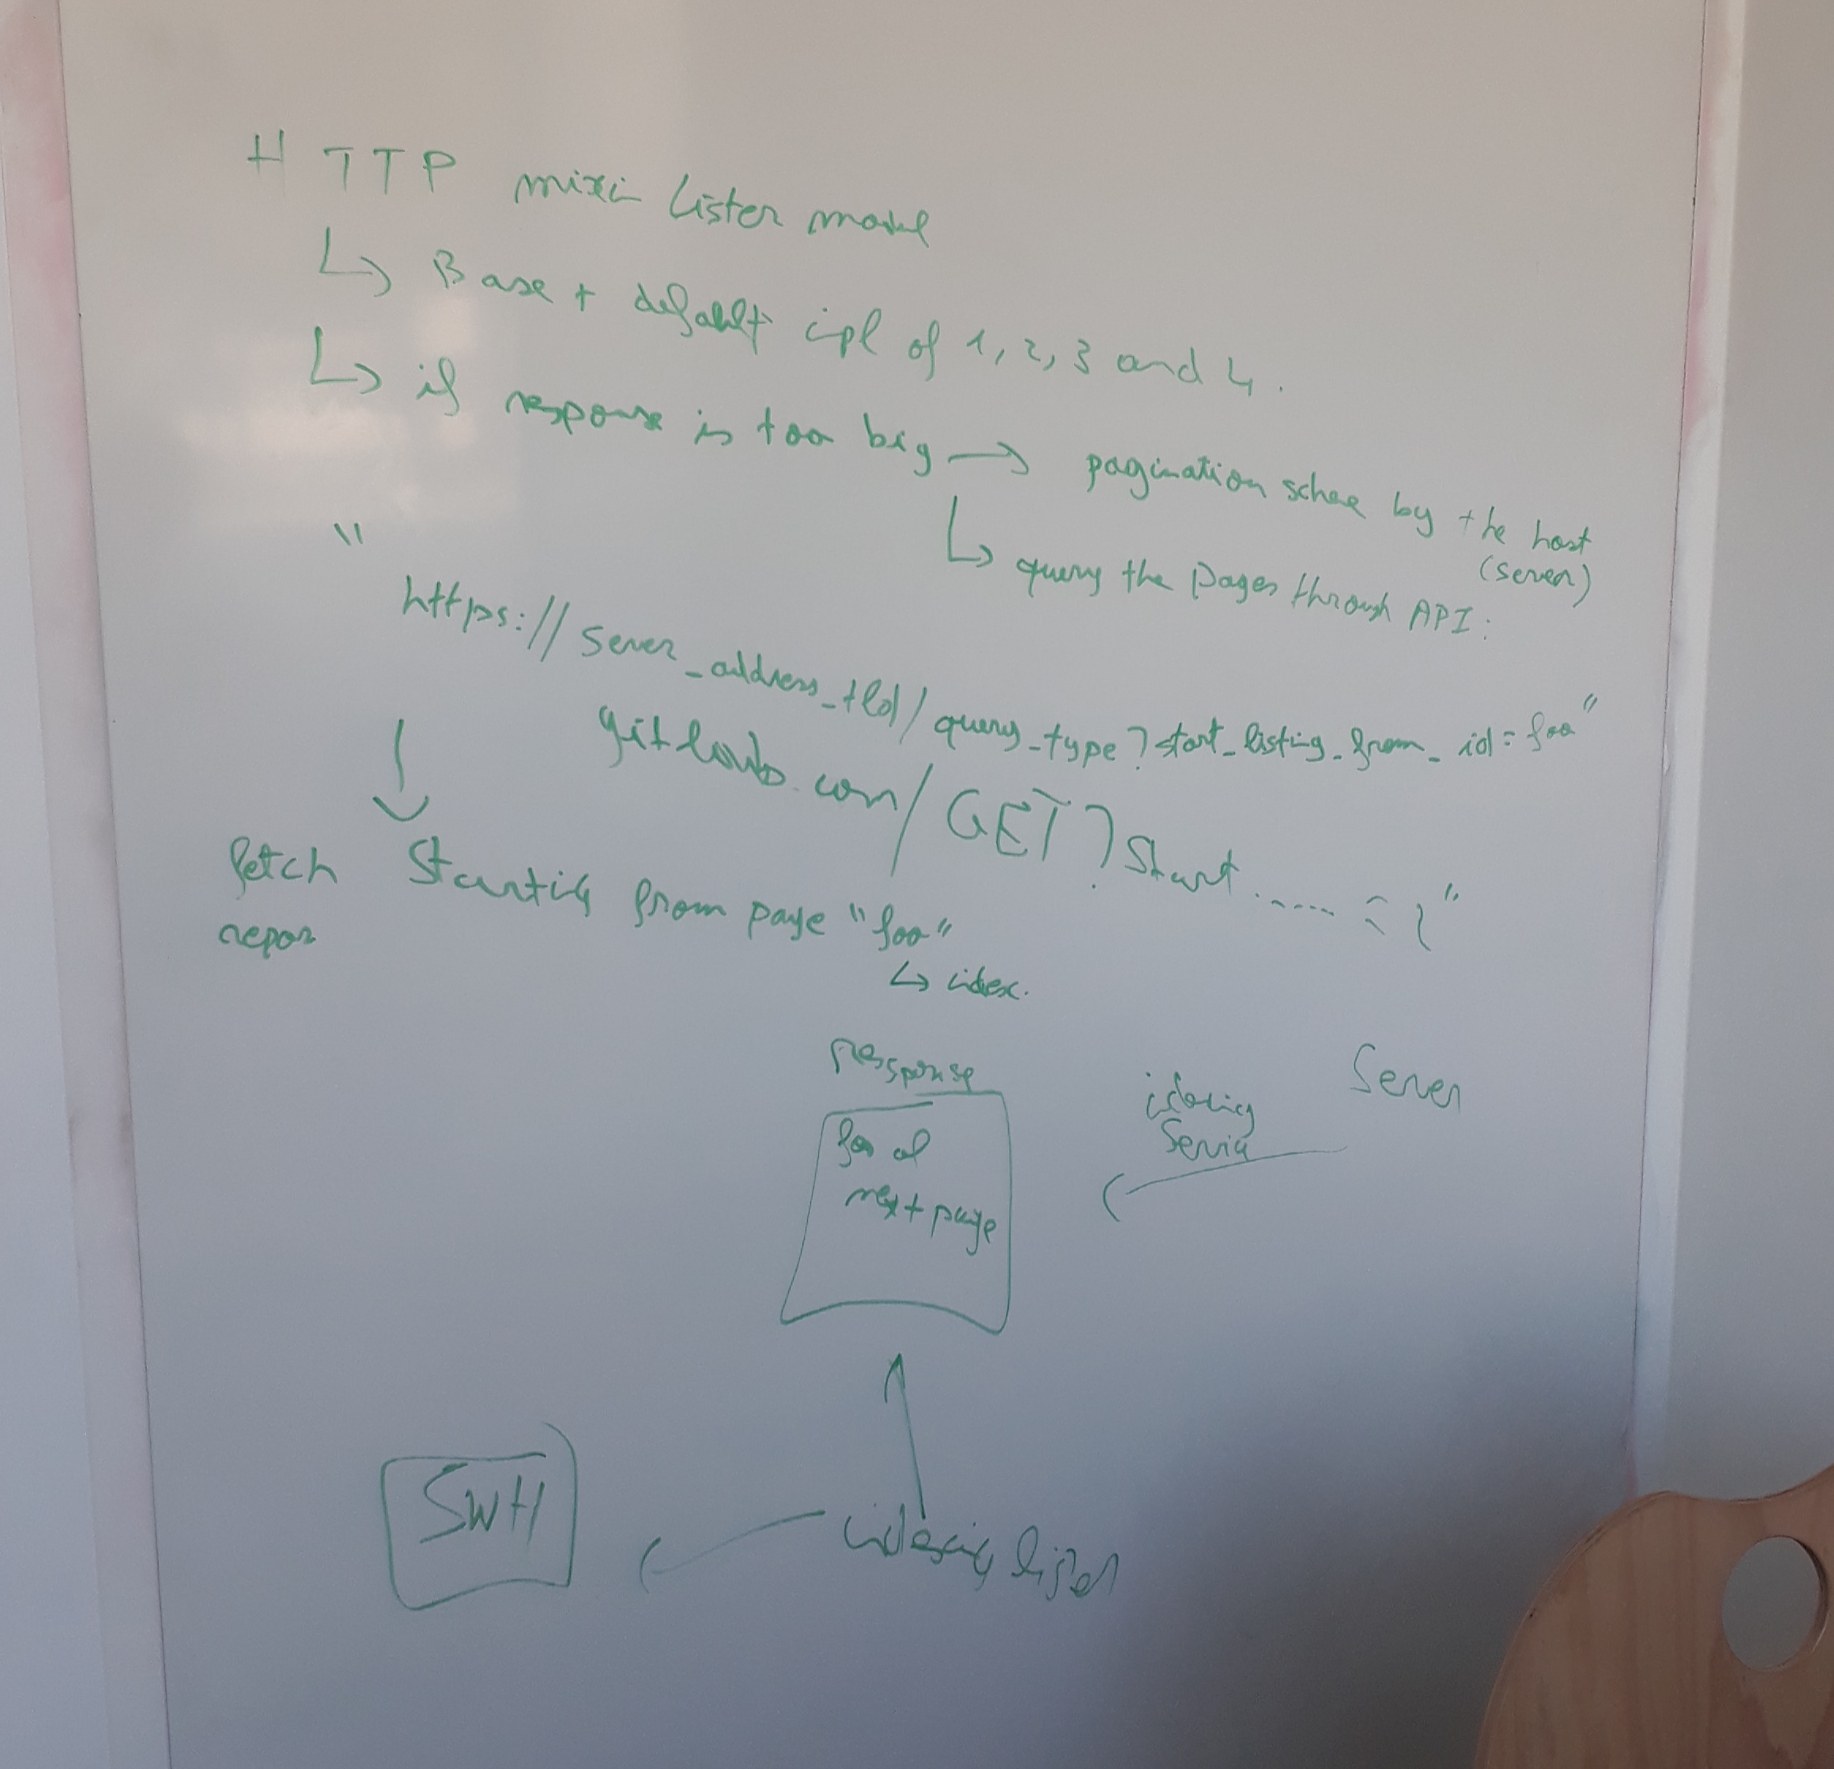 HTTP mixi Lister model
↳ Base + default ipl of 1, 2, 3 and 4.
↳ if response is too big → pagination scheme by the host (server)
↳ query the pages through API:
"https://server_address_tld/query_type?start_listing_from_id=foo"
gitlab.com/GET?Start...... = 1"
↓
fetch repos Starting from page "foo"
↳ index.
Response
foo of
next page
indexing
Service
Server
SWH
indexing lister